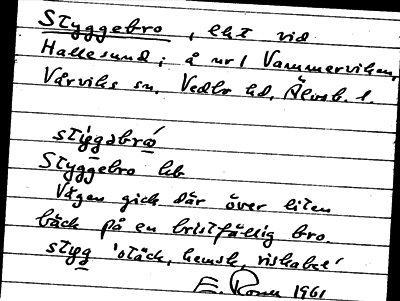 Styggebro, lht vid
Hallesund; å nr 1 Vammerviken,
Vårviks sn. Vedbo hd, Älvsb. l.
Styggebro lht
Vägen gick där över liten
bäck på en bristfällig bro.
stÿg 'otäck, hemsk, riskabel'
1961